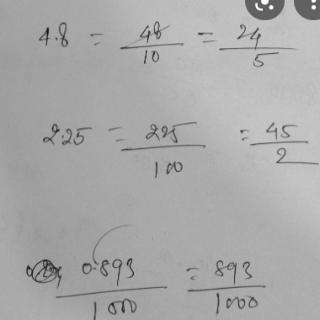 4.8 = 48/10 = 24/5
2.25 = 225/100 = 45/2
0.893/1000 = 893/1000